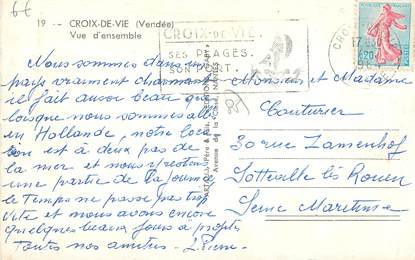 66
19 -- CROIX-DE-VIE (Vendée)
Vue d'ensemble
CROIX-DE-VIE
SES PLAGES
SON PORT
Nous sommes dans un
pays vraiment charmant
il fait aussi beau que
lorsque nous sommes allés
en Hollande, notre loca
tion est à deux pas de
la mer et nous y restons
une partie de la journée
le temps ne passe pas trop
vite et nous avons encore
quelques beaux jours à profiter
toutes nos amitiés - Pierre
Monsieur et Madame
Couturier
30 rue Zamenhof
Sotteville lès Rouen
Seine Maritime